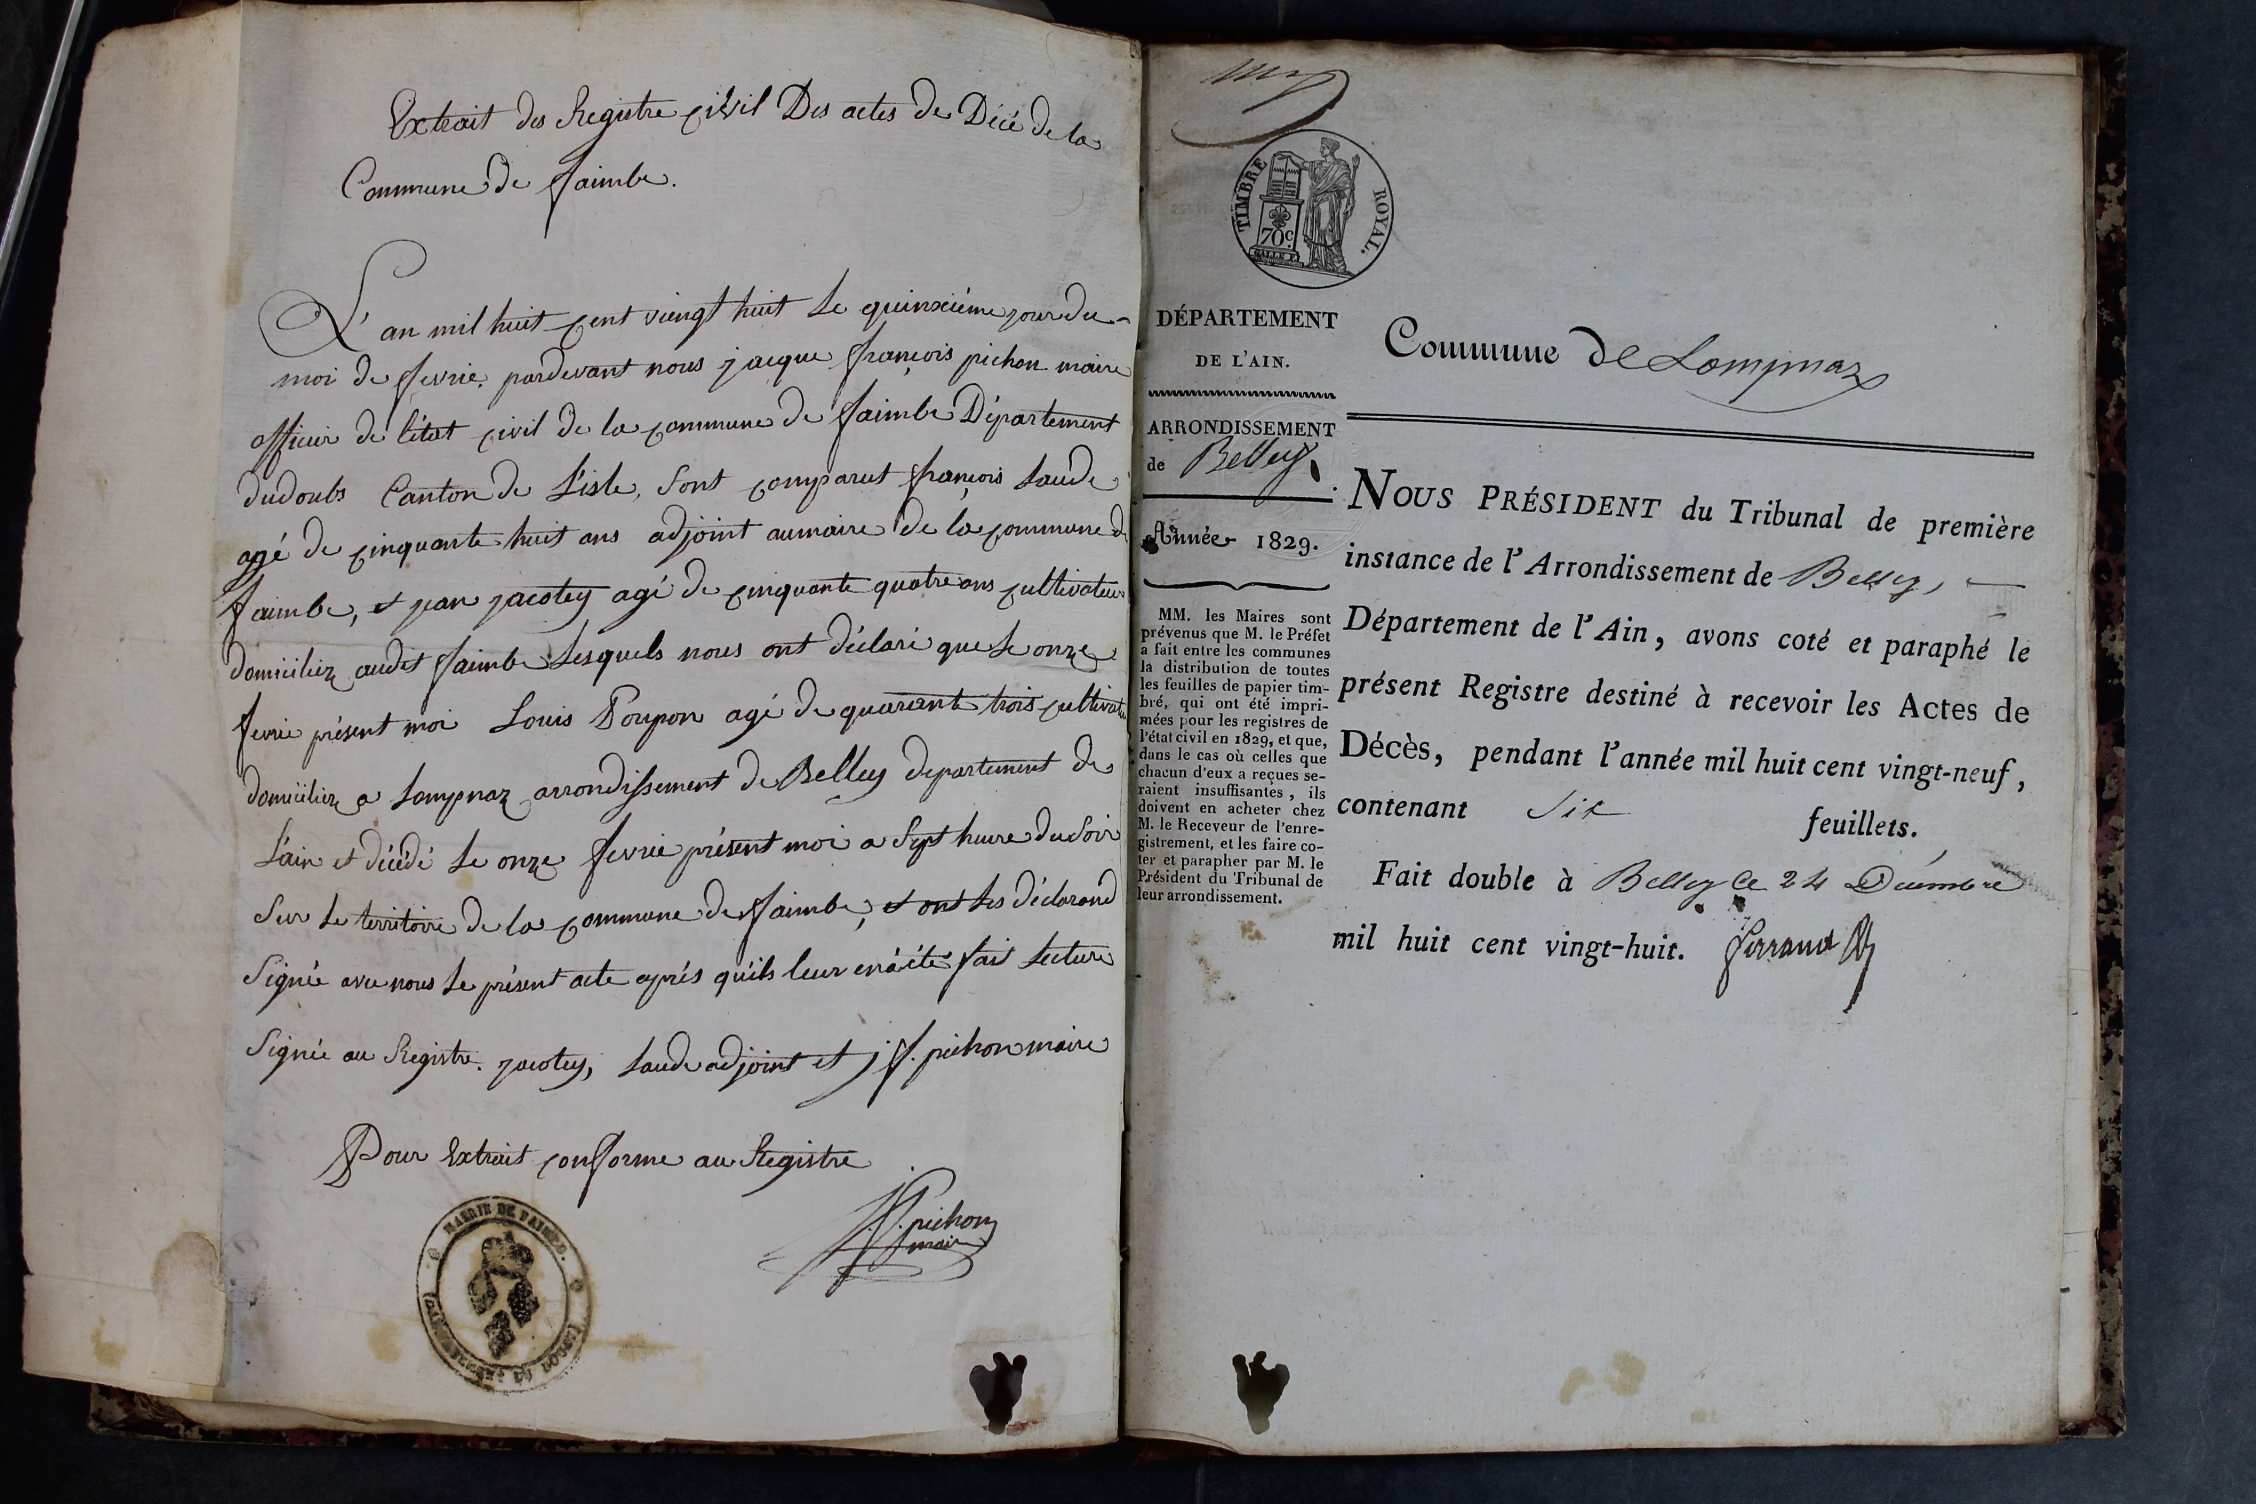 Extrait des Registre civil Des actes de Décé de la
Commune de faimbe.
L'an mil huit cent viengt huit le quinxiéme jour du
moi de fevrie. pardevant nous jacque françois pichon maire
officier de l'état civil de la commune de faimbe Département
dudoubs Canton de L'isle, sont comparut françois Laude
agé de cinquante huit ans adjoint aumaire de la commune de
faimbe, et jean jacotey agé de cinquante quatre ans cultivateur
domiciliez audit faimbe Lesquels nous ont déclaré que le onze
fevrie présent moi Louis Poupon agé de quarant trois cultivat
domiciliez a Lompnaz arrondissement de Belley departement de
L'ain et décédé le onze fevrie présent moi a Sept heure du Soir
Sur le territoire de la commune de faimbe, et ont les déclarand
Signée avec nous le présent acte aprés qu'ils leur en à été fait Lecture
Signée au Registre. jacotey, Laude adjoint et j f. pichon maire
Pour Extrait conforme au Registre
J.f. pichon
maire
MAIRIE DE FAIMBE.
TIMBRE ROYAL.
70c
DÉPARTEMENT
DE L'AIN.
ARRONDISSEMENT
de Belley
Année 1829.
MM. les Maires sont
prévenus que M. le Préfet
a fait entre les communes
la distribution de toutes
les feuilles de papier tim-
bré, qui ont été impri-
mées pour les registres de
l'état civil en 1829, et que,
dans le cas où celles que
chacun d'eux a reçues se-
raient insuffisantes, ils
doivent en acheter chez
M. le Receveur de l'enre-
gistrement, et les faire co-
ter et parapher par M. le
Président du Tribunal de
leur arrondissement.
Commune de Lompnaz
NOUS PRÉSIDENT du Tribunal de première
instance de l'Arrondissement de Belley,
Département de l'Ain, avons coté et paraphé le
présent Registre destiné à recevoir les Actes de
Décès, pendant l'année mil huit cent vingt-neuf,
contenant Six feuillets.
Fait double à Belley Le 24 Décembre
mil huit cent vingt-huit. ferrand